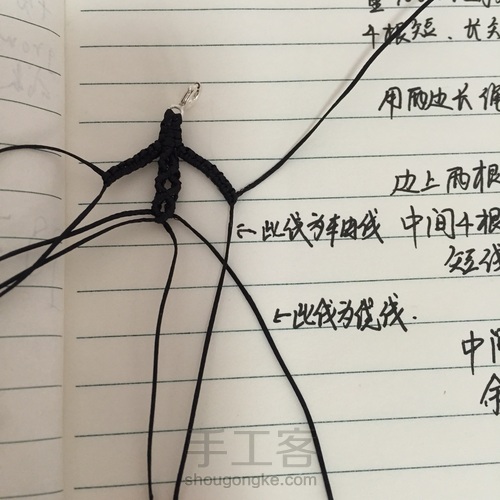 4根短、长
用两边长绳
边上两根
←此线为轴线 中间4根
短线
←此线为绕线.
中间
余
手工客
shougongke.com